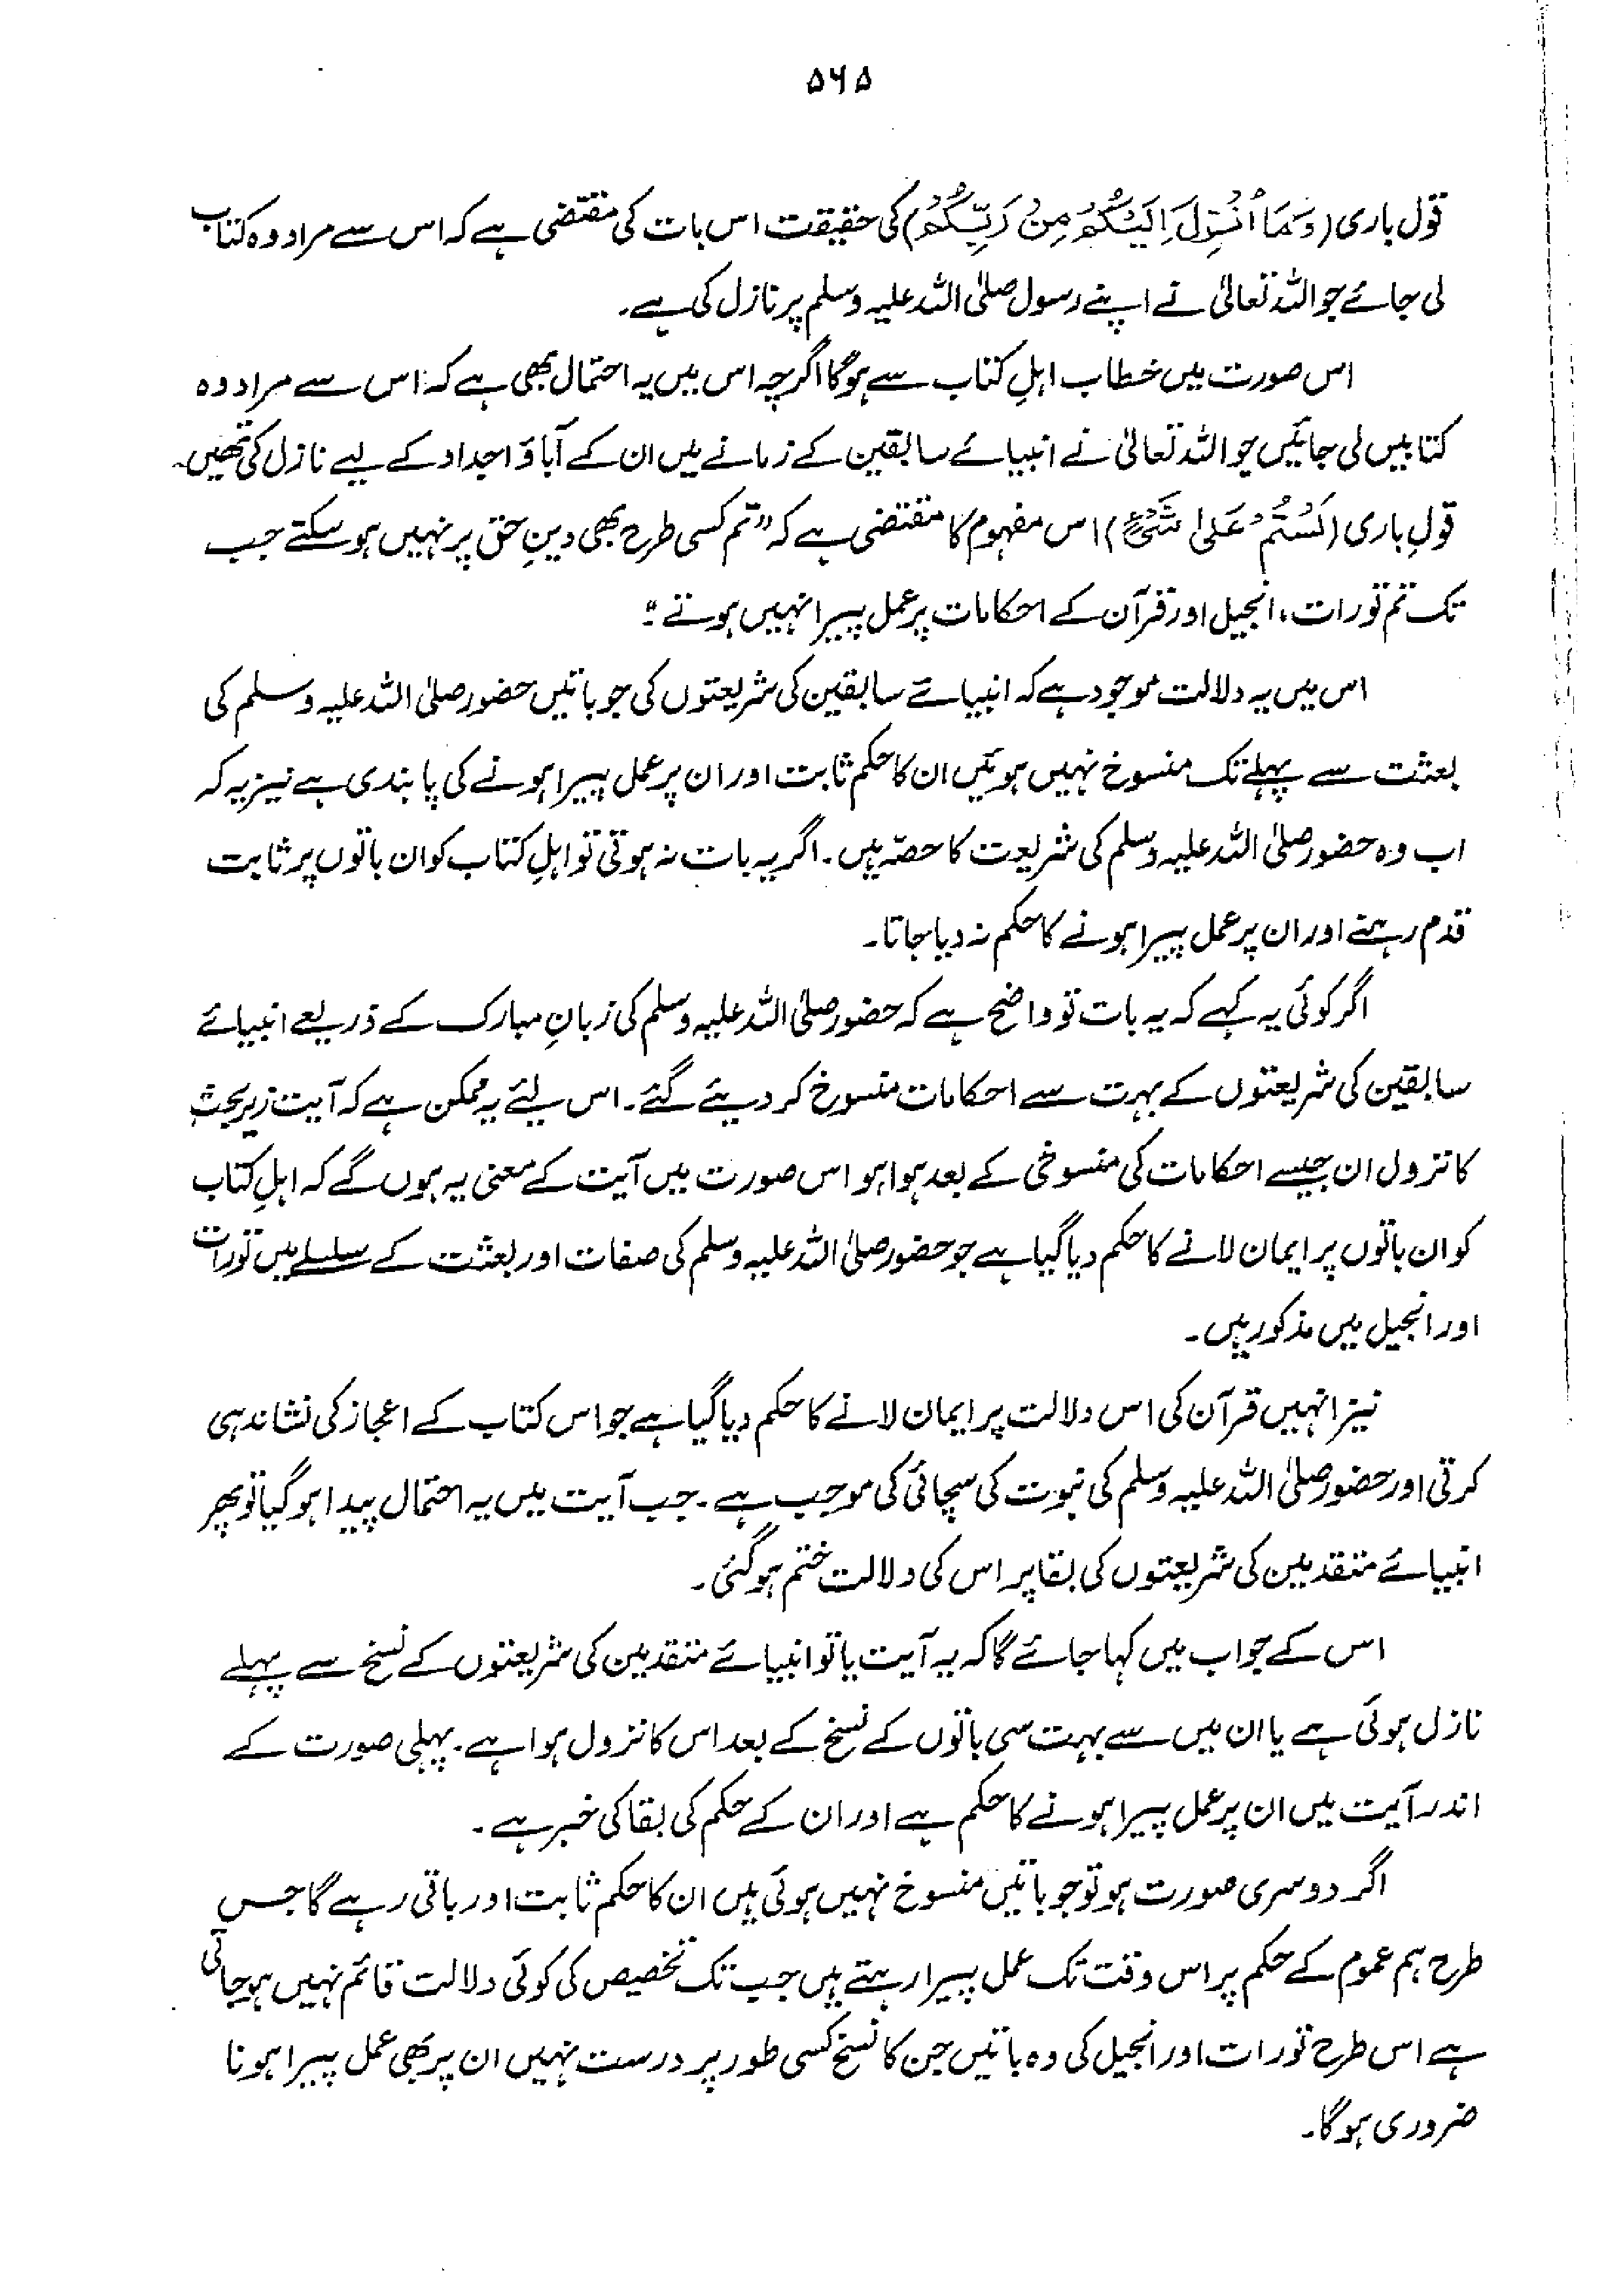 ۵۶۵
قول باری (وَمَا اُنْزِلَ اِلَيْكُمْ مِنْ رَبِّكُمْ) کی حقیقت اس بات کی مقتضی ہے کہ اس سے مراد وہ کتاب
لی جائے جو اللہ تعالیٰ نے اپنے رسول صلی اللہ علیہ وسلم پر نازل کی ہے۔
اس صورت میں خطاب اہلِ کتاب سے ہوگا اگرچہ اس میں یہ احتمال بھی ہے کہ اس سے مراد وہ
کتابیں لی جائیں جو اللہ تعالیٰ نے انبیائے سابقین کے زمانے میں ان کے آباؤ اجداد کے لیے نازل کی تھیں۔
قولِ باری (لَسْتُمْ عَلٰى شَیْءٍ) اس مفہوم کا مقتضی ہے کہ "تم کسی طرح بھی دینِ حق پر نہیں ہو سکتے جب
تک تم تورات، انجیل اور قرآن کے احکامات پر عمل پیرا نہیں ہوتے"۔
اس میں یہ دلالت موجود ہے کہ انبیائے سابقین کی شریعتوں کی جو باتیں حضور صلی اللہ علیہ وسلم کی
بعثت سے پہلے تک منسوخ نہیں ہوئیں ان کا حکم ثابت اور ان پر عمل پیرا ہونے کی پابندی ہے نیز یہ کہ
اب وہ حضور صلی اللہ علیہ وسلم کی شریعت کا حصّہ ہیں۔ اگر یہ بات نہ ہوتی تو اہلِ کتاب کو ان باتوں پر ثابت
قدم رہنے اور ان پر عمل پیرا ہونے کا حکم نہ دیا جاتا۔
اگر کوئی یہ کہے کہ یہ بات تو واضح ہے کہ حضور صلی اللہ علیہ وسلم کی زبانِ مبارک کے ذریعے انبیائے
سابقین کی شریعتوں کے بہت سے احکامات منسوخ کر دیئے گئے۔ اس لیئے یہ ممکن ہے کہ آیت زیر بحث
کا نزول ان جیسے احکامات کی منسوخی کے بعد ہوا ہو اس صورت میں آیت کے معنی یہ ہوں گے کہ اہلِ کتاب
کو ان باتوں پر ایمان لانے کا حکم دیا گیا ہے جو حضور صلی اللہ علیہ وسلم کی صفات اور بعثت کے سلسلے میں تورات
اور انجیل میں مذکور ہیں۔
نیز انہیں قرآن کی اس دلالت پر ایمان لانے کا حکم دیا گیا ہے جو اس کتاب کے اعجاز کی نشاندہی
کرتی اور حضور صلی اللہ علیہ وسلم کی نبوت کی سچائی کی موجب ہے۔ جب آیت میں یہ احتمال پیدا ہو گیا تو پھر
انبیائے متقدمین کی شریعتوں کی بقا پر اس کی دلالت ختم ہو گئی۔
اس کے جواب میں کہا جائے گا کہ یہ آیت یا تو انبیائے متقدمین کی شریعتوں کے نسخ سے پہلے
نازل ہوئی ہے یا ان میں سے بہت سی باتوں کے نسخ کے بعد اس کا نزول ہوا ہے۔ پہلی صورت کے
اندر آیت میں ان پر عمل پیرا ہونے کا حکم ہے اور ان کے حکم کی بقا کی خبر ہے۔
اگر دوسری صورت ہو تو جو باتیں منسوخ نہیں ہوئی ہیں ان کا حکم ثابت اور باقی رہے گا جس
طرح ہم عموم کے حکم پر اس وقت تک عمل پیرا رہتے ہیں جب تک تخصیص کی کوئی دلالت قائم نہیں ہو جاتی
ہے اس طرح تورات اور انجیل کی وہ باتیں جن کا نسخ کسی طور پر درست نہیں ان پر بھی عمل پیرا ہونا
ضروری ہوگا۔